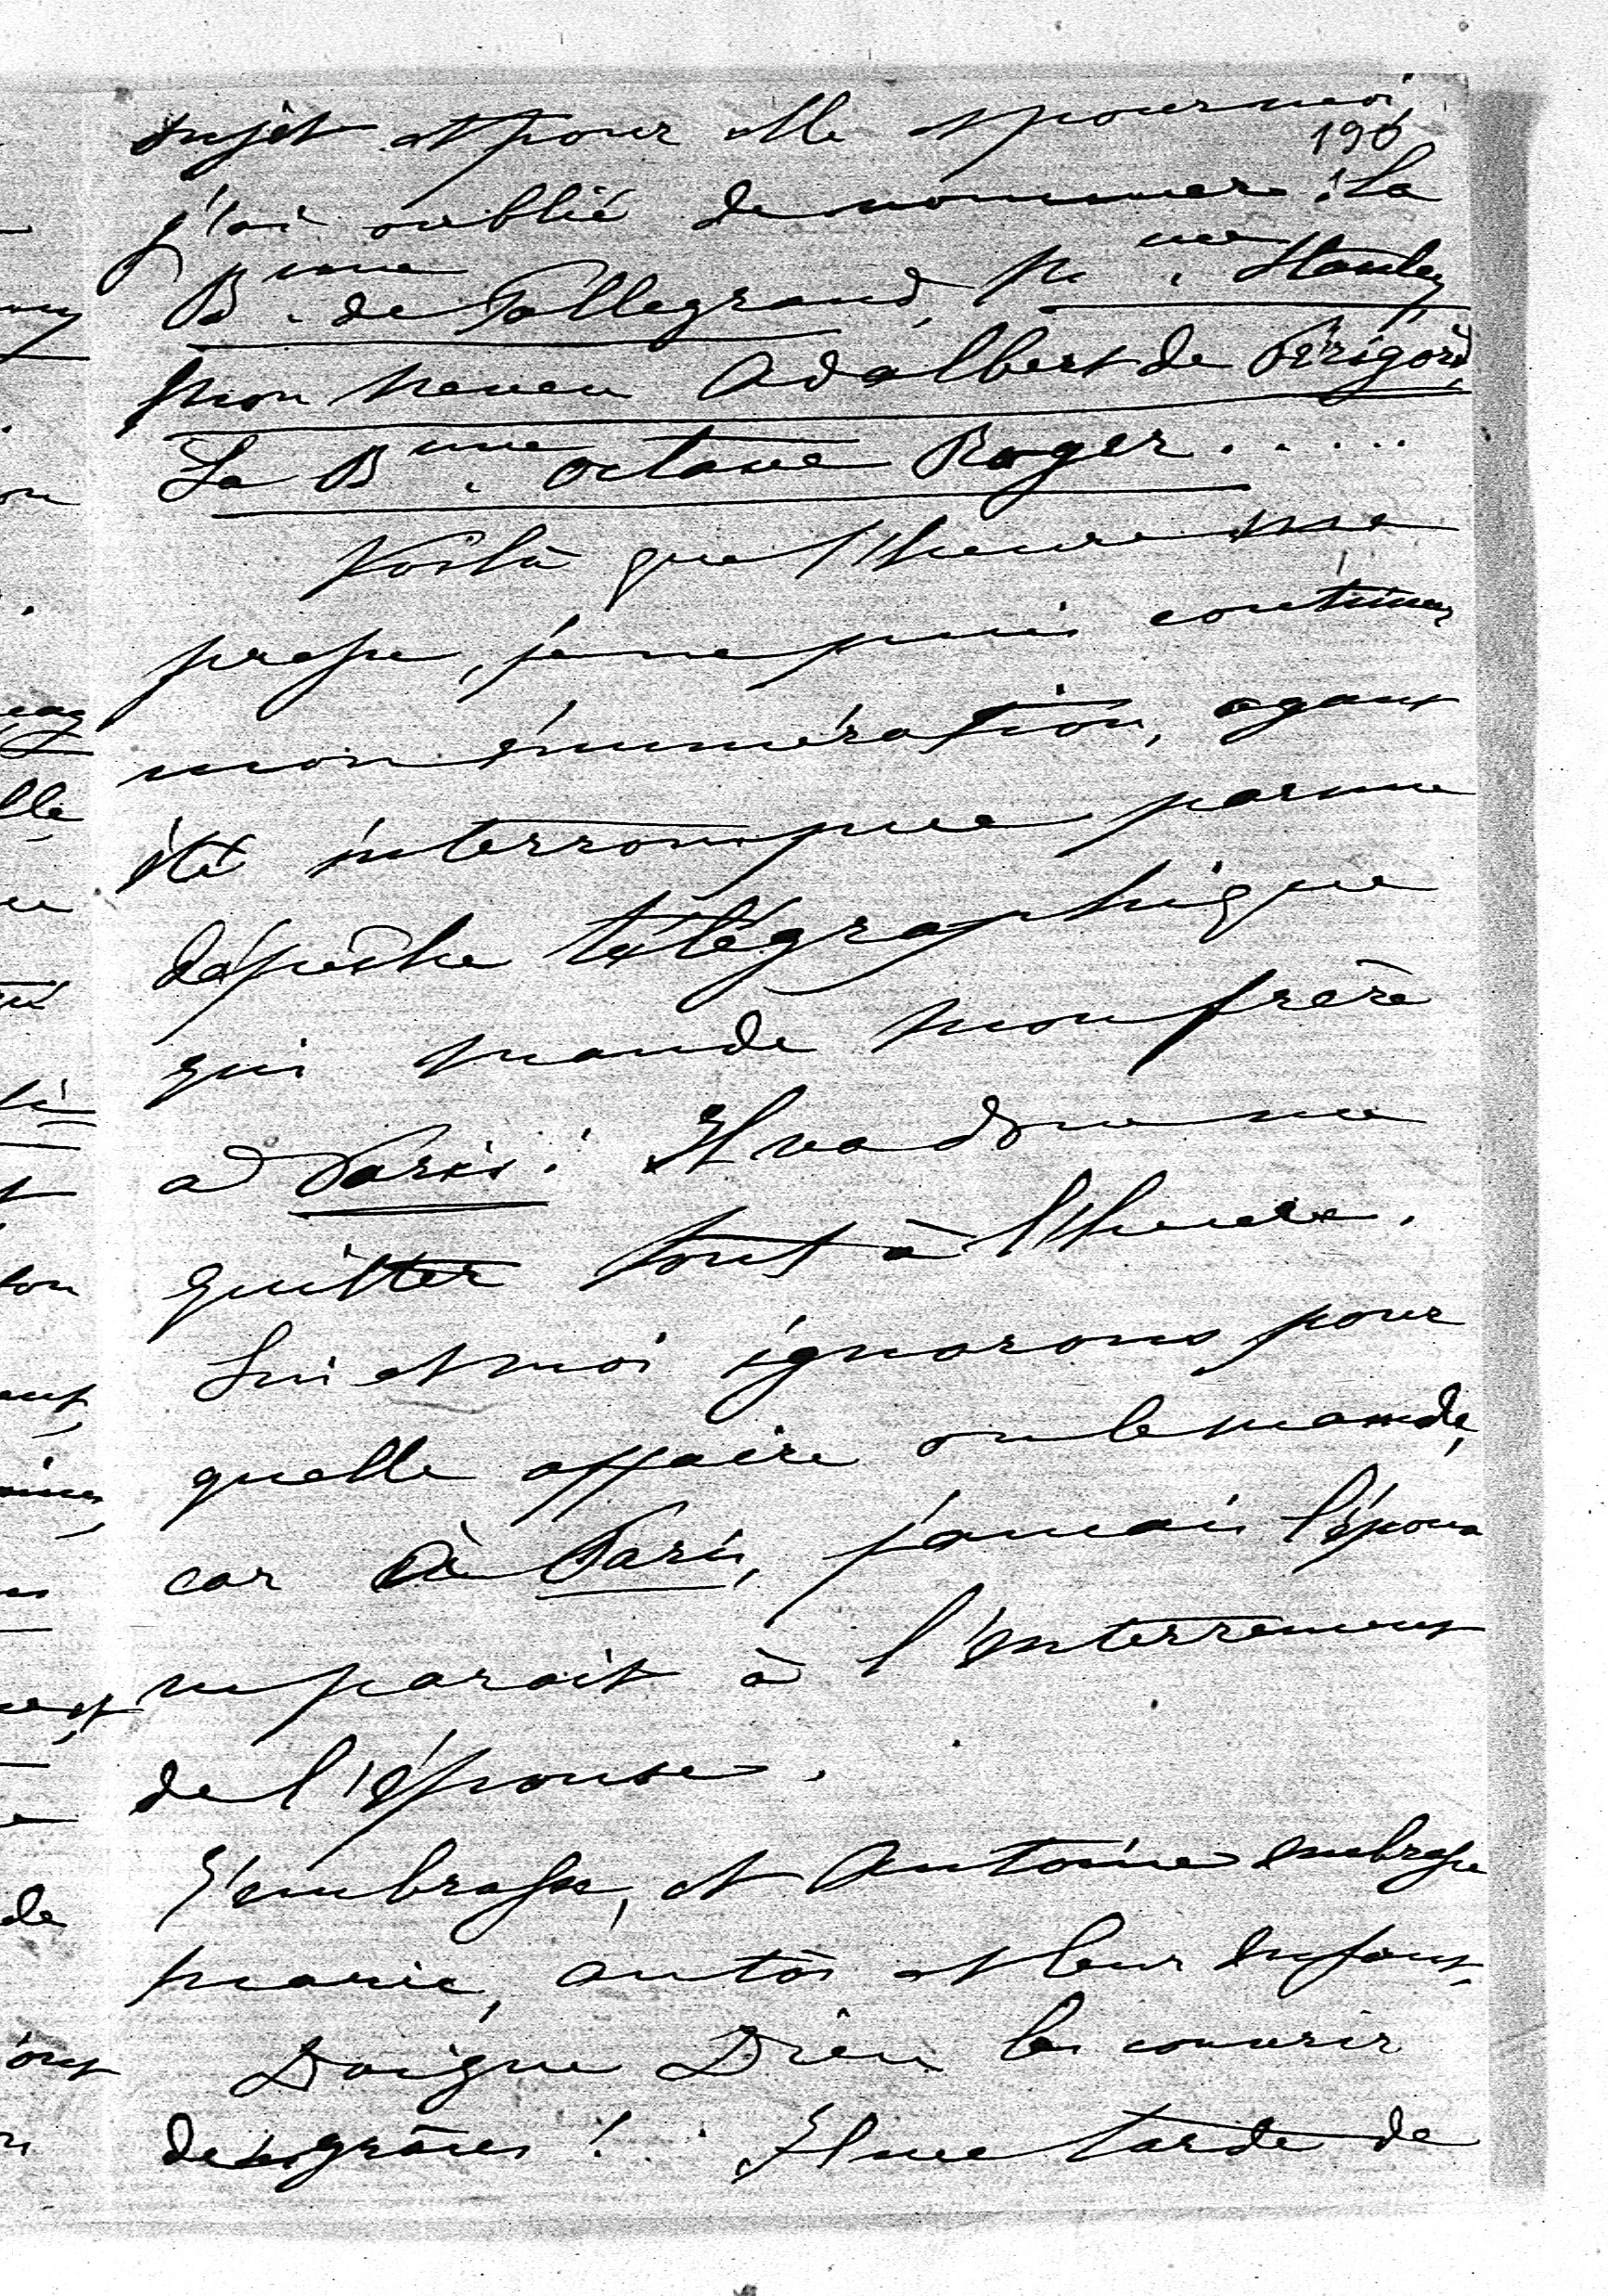 sujèt et pour elle et pour moi,
196
j'ai oublié de nommer : La
Bnne. de Pallegrand, Mme. Stanley,
Mon Neveu Adalbert de Périgord,
La Bnne. Octave Roger.....
Voilà que l'heure me
presse, je ne puis continuer
mon énumération, ayant
été interrompue par une
dépèche télégraphique
qui mande mon frère
a Paris ! Il va donc me
quitter tout à l'heure.
Lui et moi ignorons pour
quelle affaire on le mande,
car à Paris, jamais l'époux
ne parait à l'enterrement
de l'épouse.
J'embrasse, et Antoine embrasse
Marie, Antoi et leur Enfant.
Daigne Dieu les couvrir
de ses grâces ! Il me tarde de